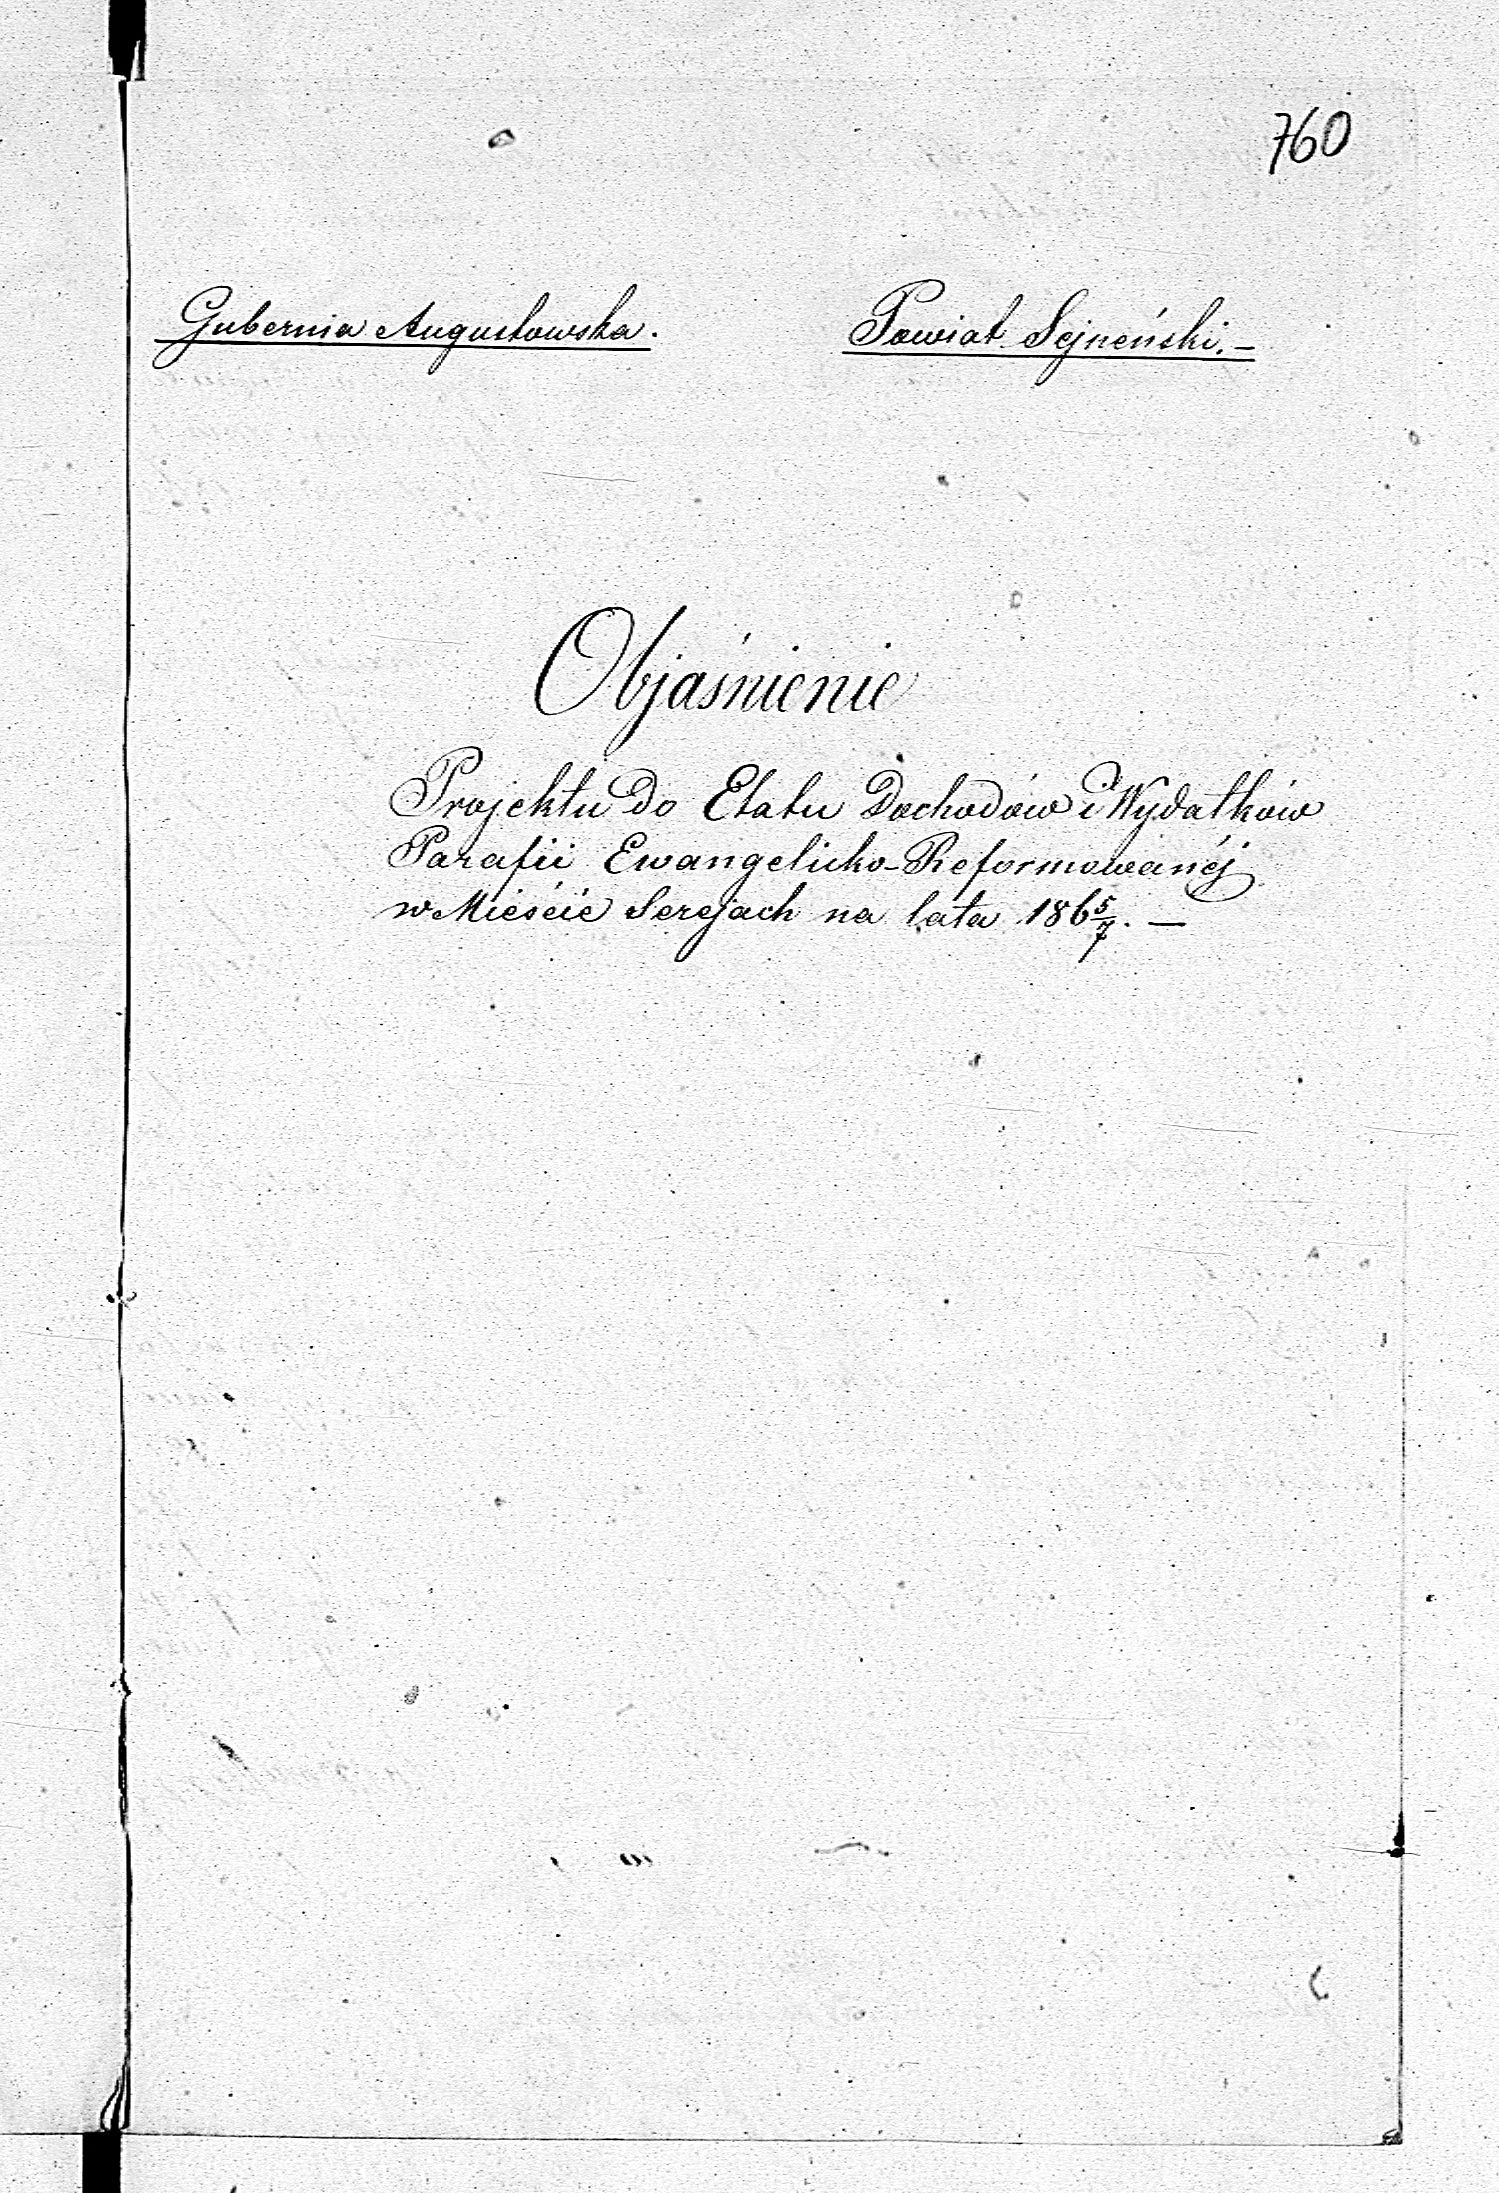 760
Gubernia Augustowska. Powiat Sejneński. –
Objaśnienie
Projektu do Etatu Dochodów i Wydatków
Parafii Ewangelicko-Reformowanéj
w Mieście Serejach na lata 186 5/7. —